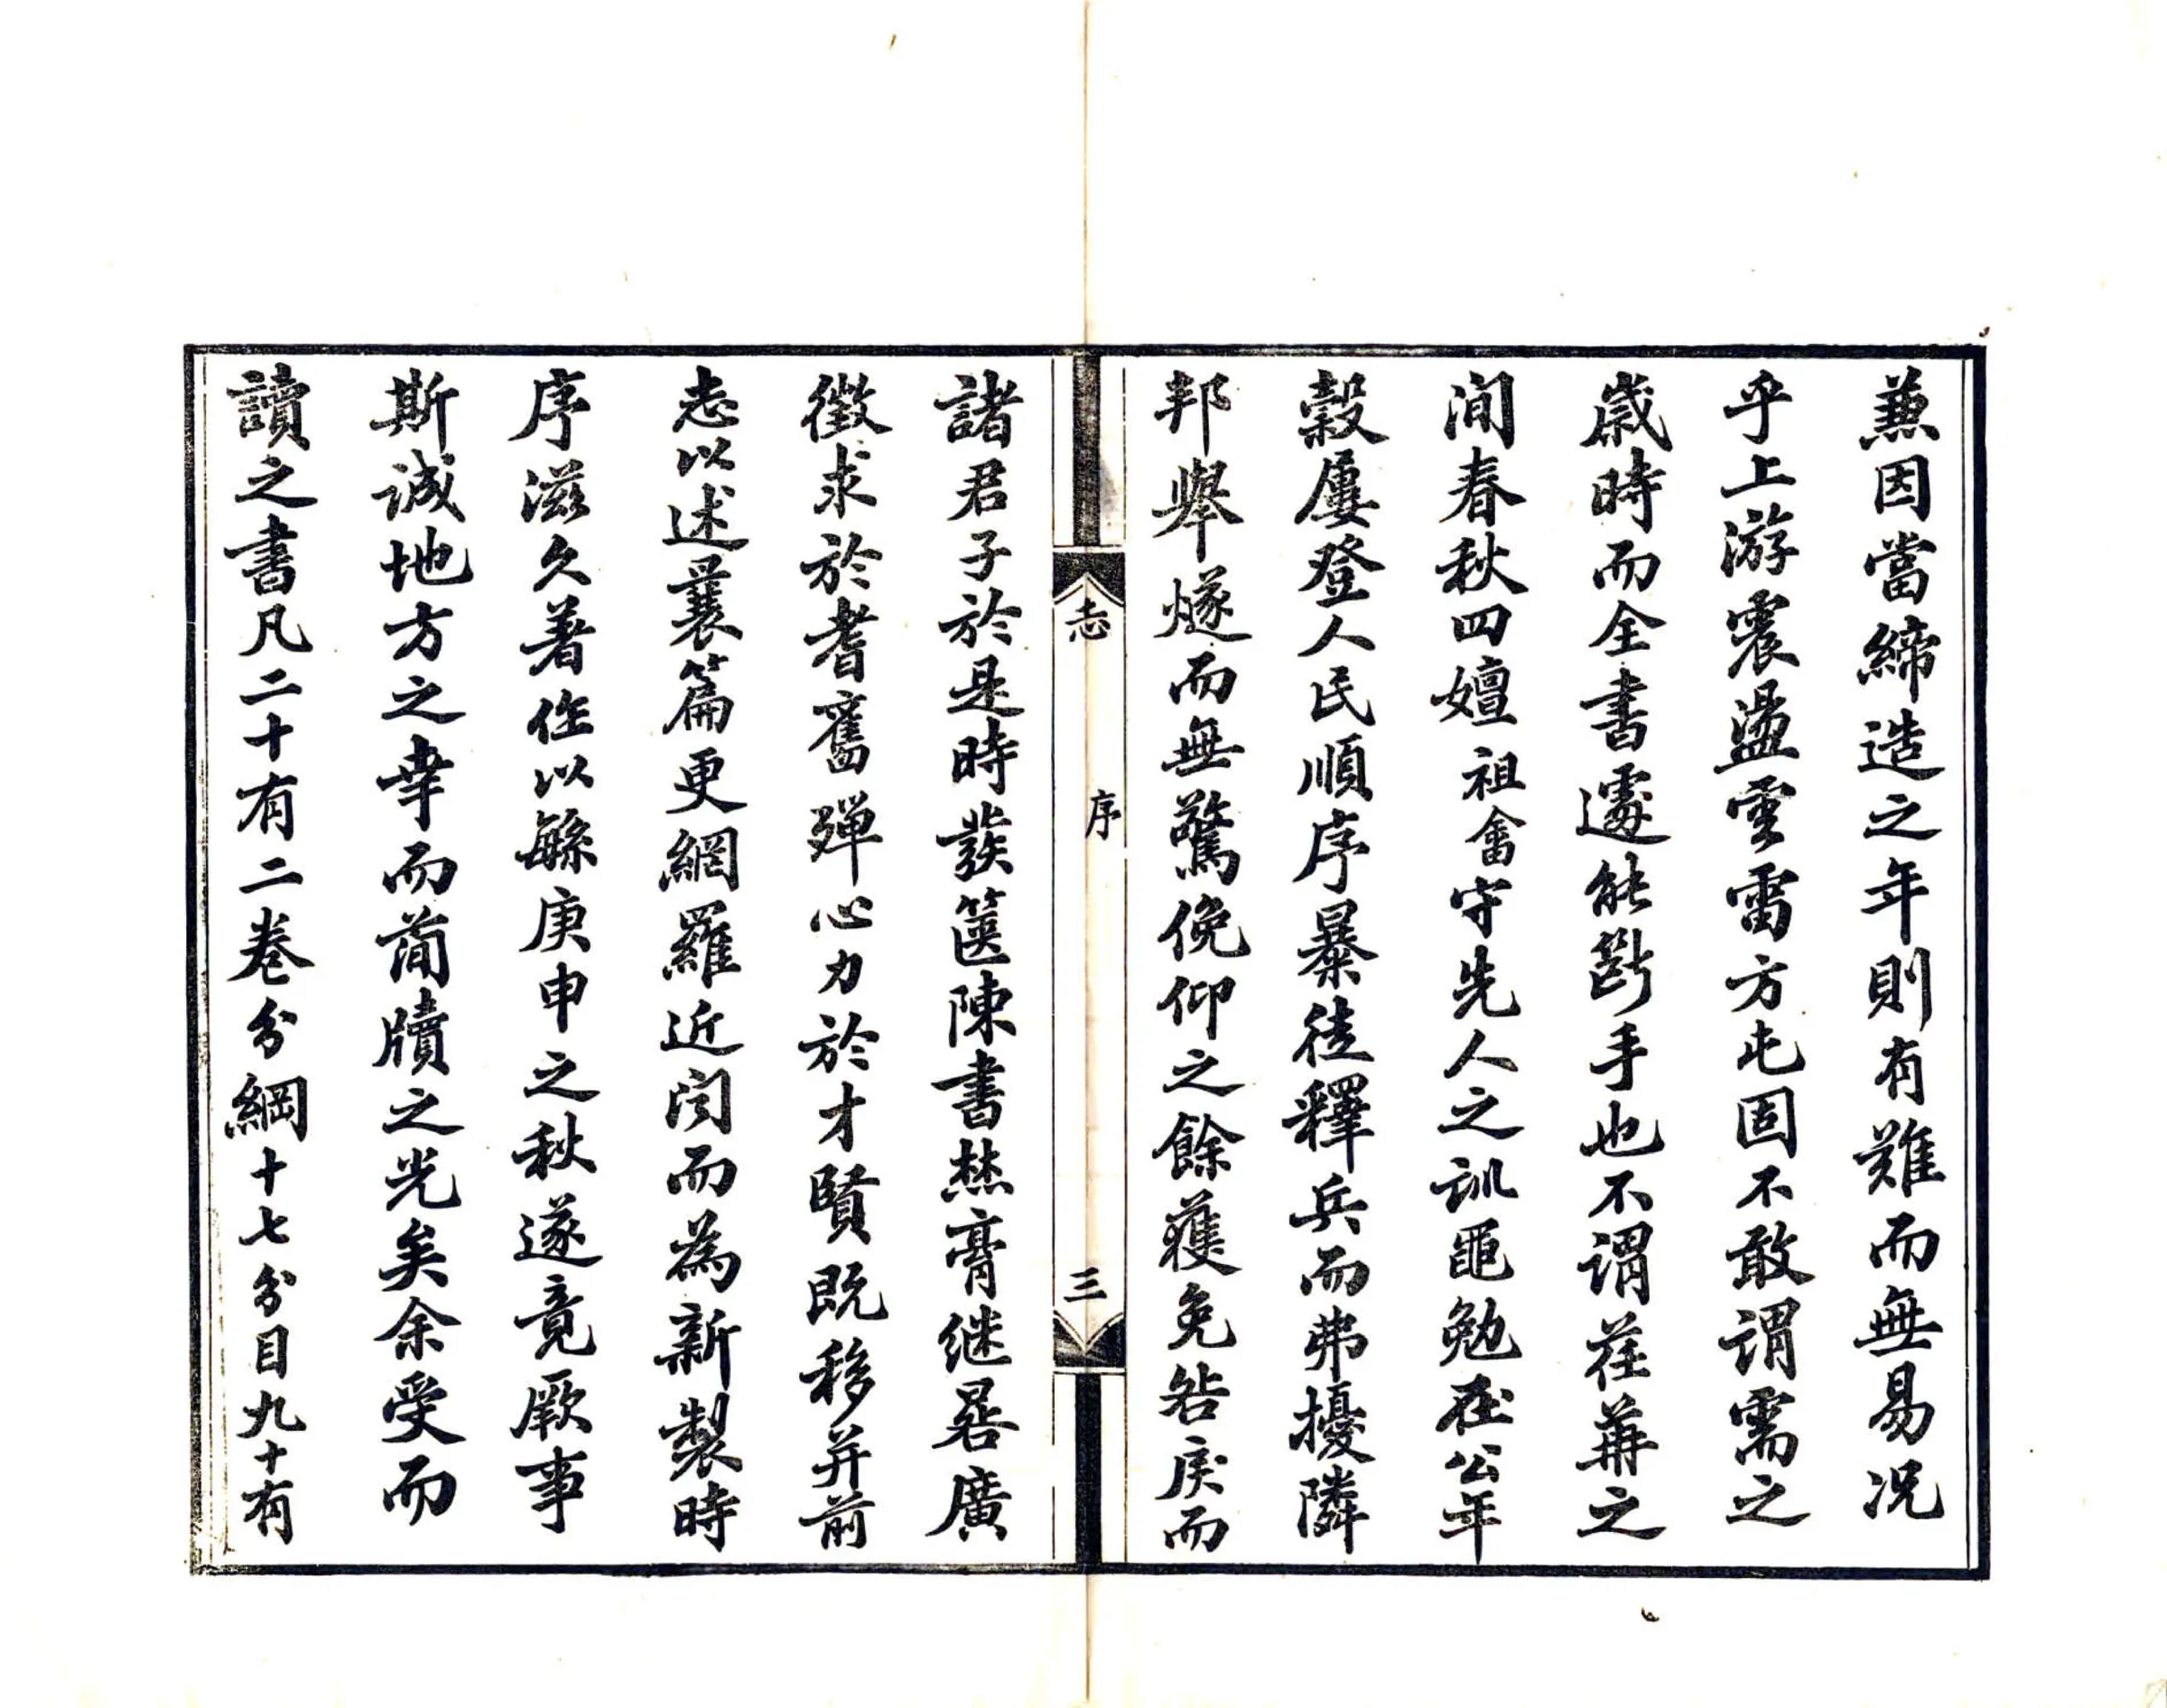 兼因當締造之年則有難而無易况
乎上游震盪雲雷方屯固不敢謂需之
歲時而全書遽能斷手也不謂荏苒之
間春秋四嬗祖畬守先人之訓黽勉在公年
穀屢登人民順序暴徒釋兵而弗擾隣
邦舉燧而無驚俛仰之餘獲免咎戾而
志 序 三
諸君子於是時發篋陳書焚膏继晷廣
徵求於耆舊殫心力於才賢既移并前
志以述曩篇更網羅近聞而為新製時
序滋久著作以繇庚申之秋遂竟厥事
斯誠地方之幸而簡牘之光矣余受而
讀之書凡二十有二卷分綱十七分目九十有